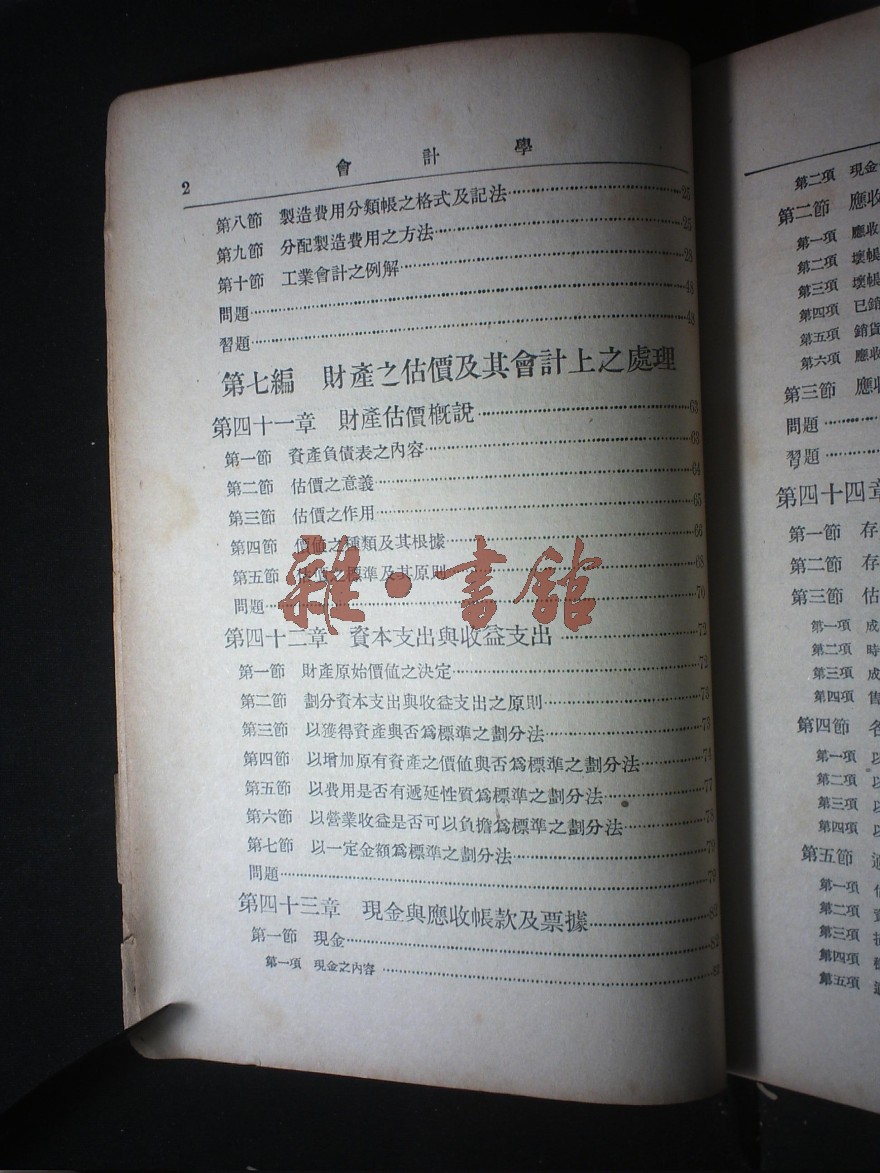 2
會 計 學
第八節 製造費用分類帳之格式及記法 25
第九節 分配製造費用之方法 25
第十節 工業會計之例解 28
問題 48
習題 48
第七編 財產之估價及其會計上之處理
第四十一章 財產估價概說 63
第一節 資產負債表之內容 63
第二節 估價之意義 64
第三節 估價之作用 65
第四節 價值之種類及其根據 66
第五節 估價之標準及其原則 68
問題 70
第四十二章 資本支出與收益支出 72
第一節 財產原始價值之決定 72
第二節 劃分資本支出與收益支出之原則 73
第三節 以獲得資產與否爲標準之劃分法 73
第四節 以增加原有資產之價值與否爲標準之劃分法 74
第五節 以費用是否有遞延性質爲標準之劃分法 77
第六節 以營業收益是否可以負擔爲標準之劃分法 78
第七節 以一定金額爲標準之劃分法 79
問題 79
第四十三章 現金與應收帳款及票據 82
第一節 現金 82
第一項 現金之內容 82
雜·書舘
第二項 現金
第二節 應收
第一項 應收
第二項 壞帳
第三項 壞帳
第四項 已銷
第五項 銷貨
第六項 應收
第三節 應收
問題
習題
第四十四章
第一節 存
第二節 存
第三節 估
第一項 成
第二項 時
第三項 成
第四項 售
第四節 各
第一項 以
第二項 以
第三項 以
第四項 以
第五節
第一項 估
第二項
第三項
第四項
第五項